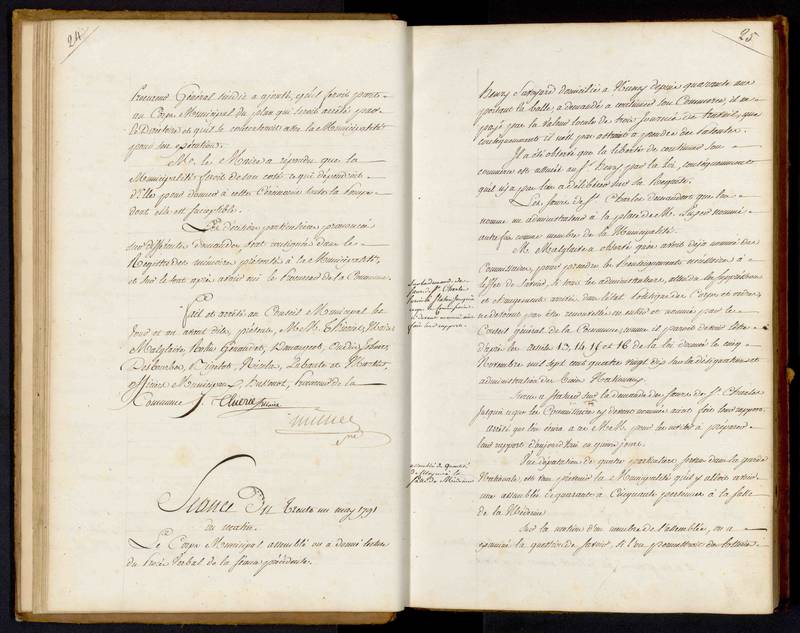 24
Procureur Général sindic a ajouté, qu'il feroit part
au Corps Municipal du plan qui seroit arrêté par
le Directoire et qu'il se concerteroit avec la Municipalité
pour son exécution.
Mr. le Maire a répondu que la
Municipalité feroit de son coté ce qui dépendroit
d'Elle pour donner à cette Cérémonie toute la pompe
dont elle est susceptible.
Les décisions particulieres prononcées
sur différentes demandes sont consignées dans le
Registre des mémoires présentés à la Municipalité,
et sur le tout après avoir oui le Procureur de la Commune
Fait et arrêté au Conseil Municipal les
jour et an avant dits, présens, MM. Thieriet, Maire
Malglaive, Rollin, Géraudet,
Nicolas,
officiers Municipaux, procureur de la
Commune
Séance Du Trente un may 1791
du matin.
Le Corps Municipal assemblé on a donné lecture
du Procès Verbal de la séance précédente.
25
Henry domicilié à Nancy depuis quarante ans
portant la balle, a demandé à continuer son Commerce, il ne
paye que la valeur locale de trois journées de travail, que
conséquemment il n'est pas astreint à prendre des Patentes.
Il a été observé que la liberté de continuer son
commerce est assurée au Sr. Henry par la loi, conséquemment
qu'il n'y a pas lieu à délibérer sur la Requête.
Les soeurs de St. Charles demandent que l'on
nomme un administrateur à la place de Mr. nommé
autrefois comme membre de la Municipalité.
Mr. Malglaive a observé qu'on avoit déjà nommé des
Commissaires, pour prendre les Renseignements nécessaires à
l'effet de savoir, si tous les administrateurs, attendu la suppression
et changemens arrivés dans l'état politique des Corps et ordres
ne devront pas être renouvellés en entier et nommés par le
Conseil général de la Commune, comme il paroit devoir l'être
d'après les articles 13, 14, 15 et 16 de la loi donnée le cinq
Novembre mil sept cent quatre vingt dix sur la désignation et
administration des biens Nationaux.
Sursis à statuer sur la demande des soeurs de St. Charles
jusqu'à ce que les Commissaires cy devant nommés aient fait leur rapport.
arrêté que l'on écrira à ces MM. pour les inviter à préparer
leur rapport d'aujourd'hui en quinze jours.
Une députation de quatre particuliers servans dans la garde
Nationale, est venu prévenir la Municipalité qu'il y alloit avoir
une assemblée de quarante à Cinquante personnes à la salle
de la Médecine
Sur la motion d'un membre de l'assemblée, on a
examiné la question de savoir, si l'on permettroit
Sur la demande des
soeurs de St. Charles
fait leur rapport.
assemblée de quarante
de citoyens à la
salle de Médecine